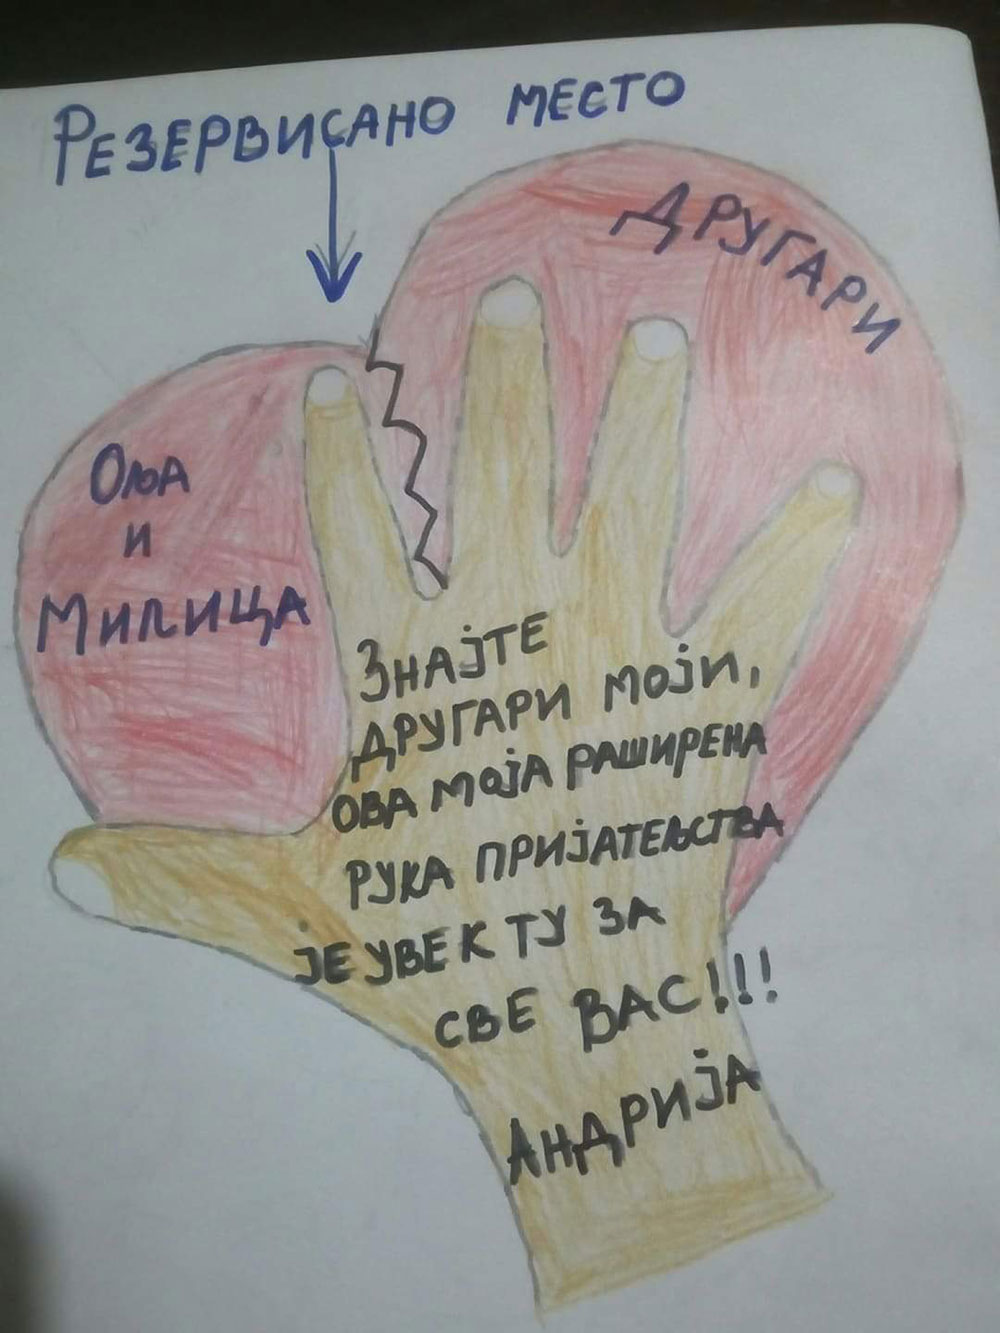 РЕЗЕРВИСАНО МЕСТО
ДРУГАРИ
ОЉА
И
МИЛИЦА
ЗНАЈТЕ
ДРУГАРИ МОЈИ,
ОВА МОЈА РАШИРЕНА
РУКА ПРИЈАТЕЉСТВА
ЈЕ УВЕК ТУ ЗА
СВЕ ВАС!!!
АНДРИЈА